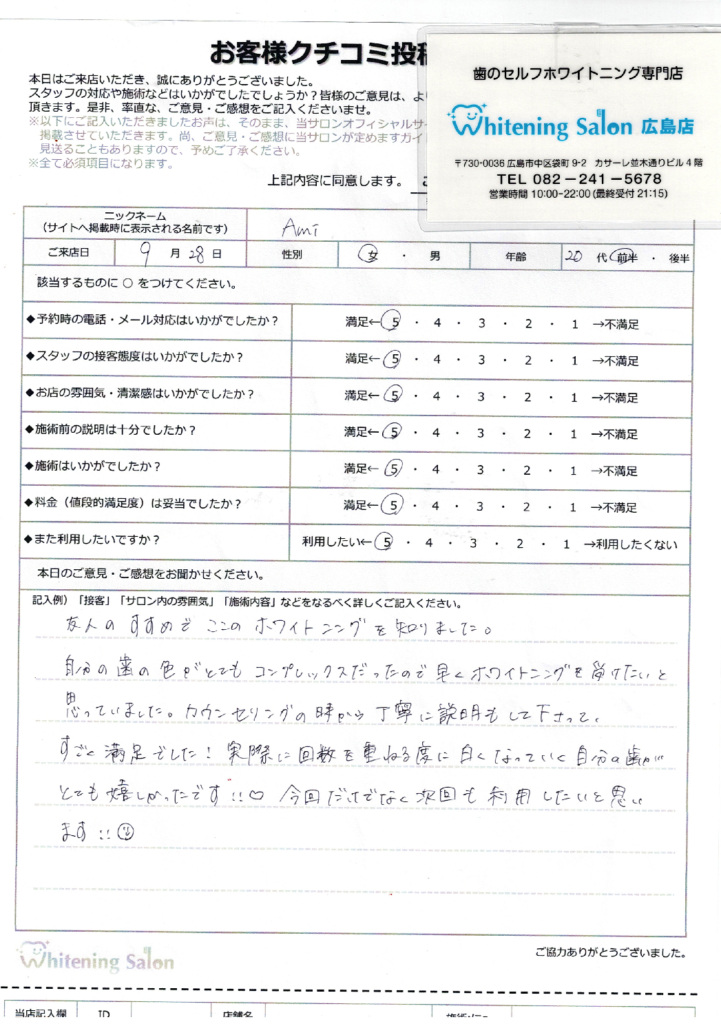 お客様クチコミ投稿
本日はご来店いただき、誠にありがとうございました。
スタッフの対応や施術などはいかがでしたでしょうか？皆様のご意見は、よ
頂きます。是非、率直な、ご意見・ご感想をご記入くださいませ。
※以下にご記入いただきましたお声は、そのまま、当サロンオフィシャルサ
掲載させていただきます。尚、ご意見・ご感想に当サロンが定めますガイ
見送ることもありますので、予めご了承ください。
※全て必須項目になります。
上記内容に同意します。
歯のセルフホワイトニング専門店
Whitening Salon 広島店
〒730-0036 広島市中区袋町 9-2 カサーレ並木通りビル 4 階
TEL 082－241－5678
営業時間 10:00-22:00 (最終受付 21:15)
ニックネーム
（サイトへ掲載時に表示される名前です） Ami
ご来店日 9 月 28 日 性別 女 ・ 男 年齢 20 代 前半 ・ 後半
該当するものに ○ をつけてください。
◆予約時の電話・メール対応はいかがでしたか？ 満足← 5 ・ 4 ・ 3 ・ 2 ・ 1 →不満足
◆スタッフの接客態度はいかがでしたか？ 満足← 5 ・ 4 ・ 3 ・ 2 ・ 1 →不満足
◆お店の雰囲気・清潔感はいかがでしたか？ 満足← 5 ・ 4 ・ 3 ・ 2 ・ 1 →不満足
◆施術前の説明は十分でしたか？ 満足← 5 ・ 4 ・ 3 ・ 2 ・ 1 →不満足
◆施術はいかがでしたか？ 満足← 5 ・ 4 ・ 3 ・ 2 ・ 1 →不満足
◆料金（値段的満足度）は妥当でしたか？ 満足← 5 ・ 4 ・ 3 ・ 2 ・ 1 →不満足
◆また利用したいですか？ 利用したい← 5 ・ 4 ・ 3 ・ 2 ・ 1 →利用したくない
本日のご意見・ご感想をお聞かせください。
記入例）「接客」「サロン内の雰囲気」「施術内容」などをなるべく詳しくご記入ください。
友人のすすめでここのホワイトニングを知りました。
自分の歯の色がとてもコンプレックスだったので早くホワイトニングを受けたいと
思っていました。カウンセリングの時から丁寧に説明もして下さって、
すごく満足でした！実際に回数を重ねる度に白くなっていく自分の歯が
とても嬉しかったです!!♡ 今回だけでなく次回も利用したいと思い
ます!!☺
Whitening Salon
ご協力ありがとうございました。
当店記入欄 ID 店舗名